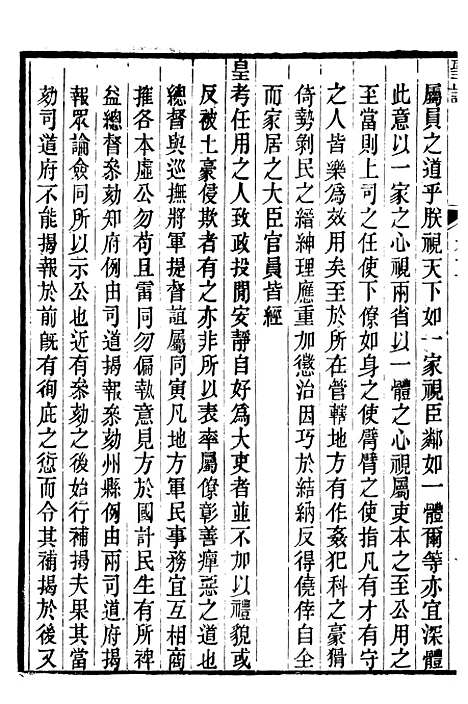 屬員之道乎朕視天下如一家視臣鄰如一體爾等亦宜深體
此意以一家之心視兩省以一體之心視屬吏本之至公用之
至當則上司之任使下僚如身之使臂臂之使指凡有才有守
之人皆樂為效用矣至於所在管轄地方有作姦犯科之豪猾
倚勢剝民之縉紳理應重加懲治因巧於結納反得僥倖自全
而家居之大臣官員皆經
皇考任用之人致政投閒安靜自好為大吏者並不加以禮貌或
反被土豪侵欺者有之亦非所以表率屬僚彰善癉惡之道也
總督與巡撫將軍提督誼屬同寅凡地方軍民事務宜互相商
搉各本虛公勿苟且雷同勿偏執意見方於國計民生有所裨
益總督叅劾知府例由司道揭報叅劾州縣例由兩司道府揭
報眾論僉同所以示公也近有叅劾之後始行補揭夫果其當
劾司道府不能揭報於前旣有徇庇之愆而令其補揭於後又